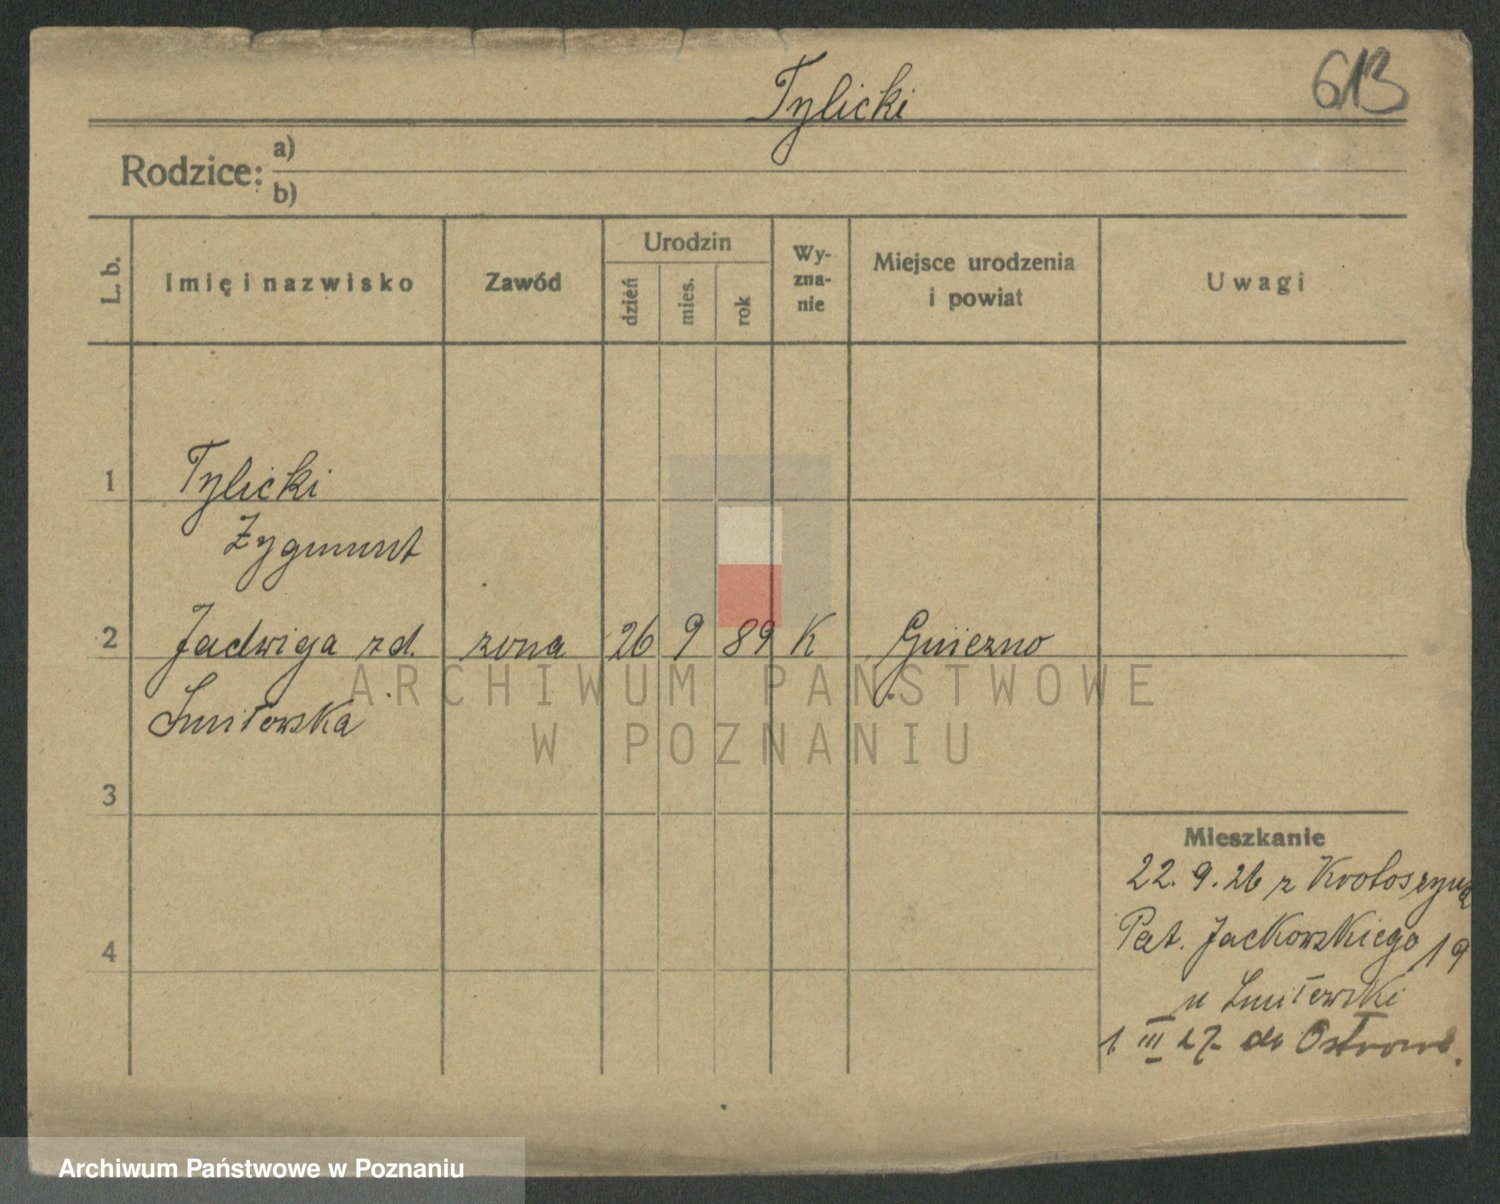 613
Tylicki
Rodzice: a)
b)
L. b. Imię i nazwisko Zawód Urodzin dzień mies. rok Wy-zna-nie Miejsce urodzenia i powiat Uwagi
1 Tylicki
Zygmunt
2 Jadwiga zd. zona 26 9 89 K Gniezno
Smiłowska
3
Mieszkanie
22. 9. 26 z Krotoszyna
Pat. Jackowskiego 19
4
u Smiłowski
1 III 27 do Ostrowa.
ARCHIWUM PAŃSTWOWE
W POZNANIU
Archiwum Państwowe w Poznaniu